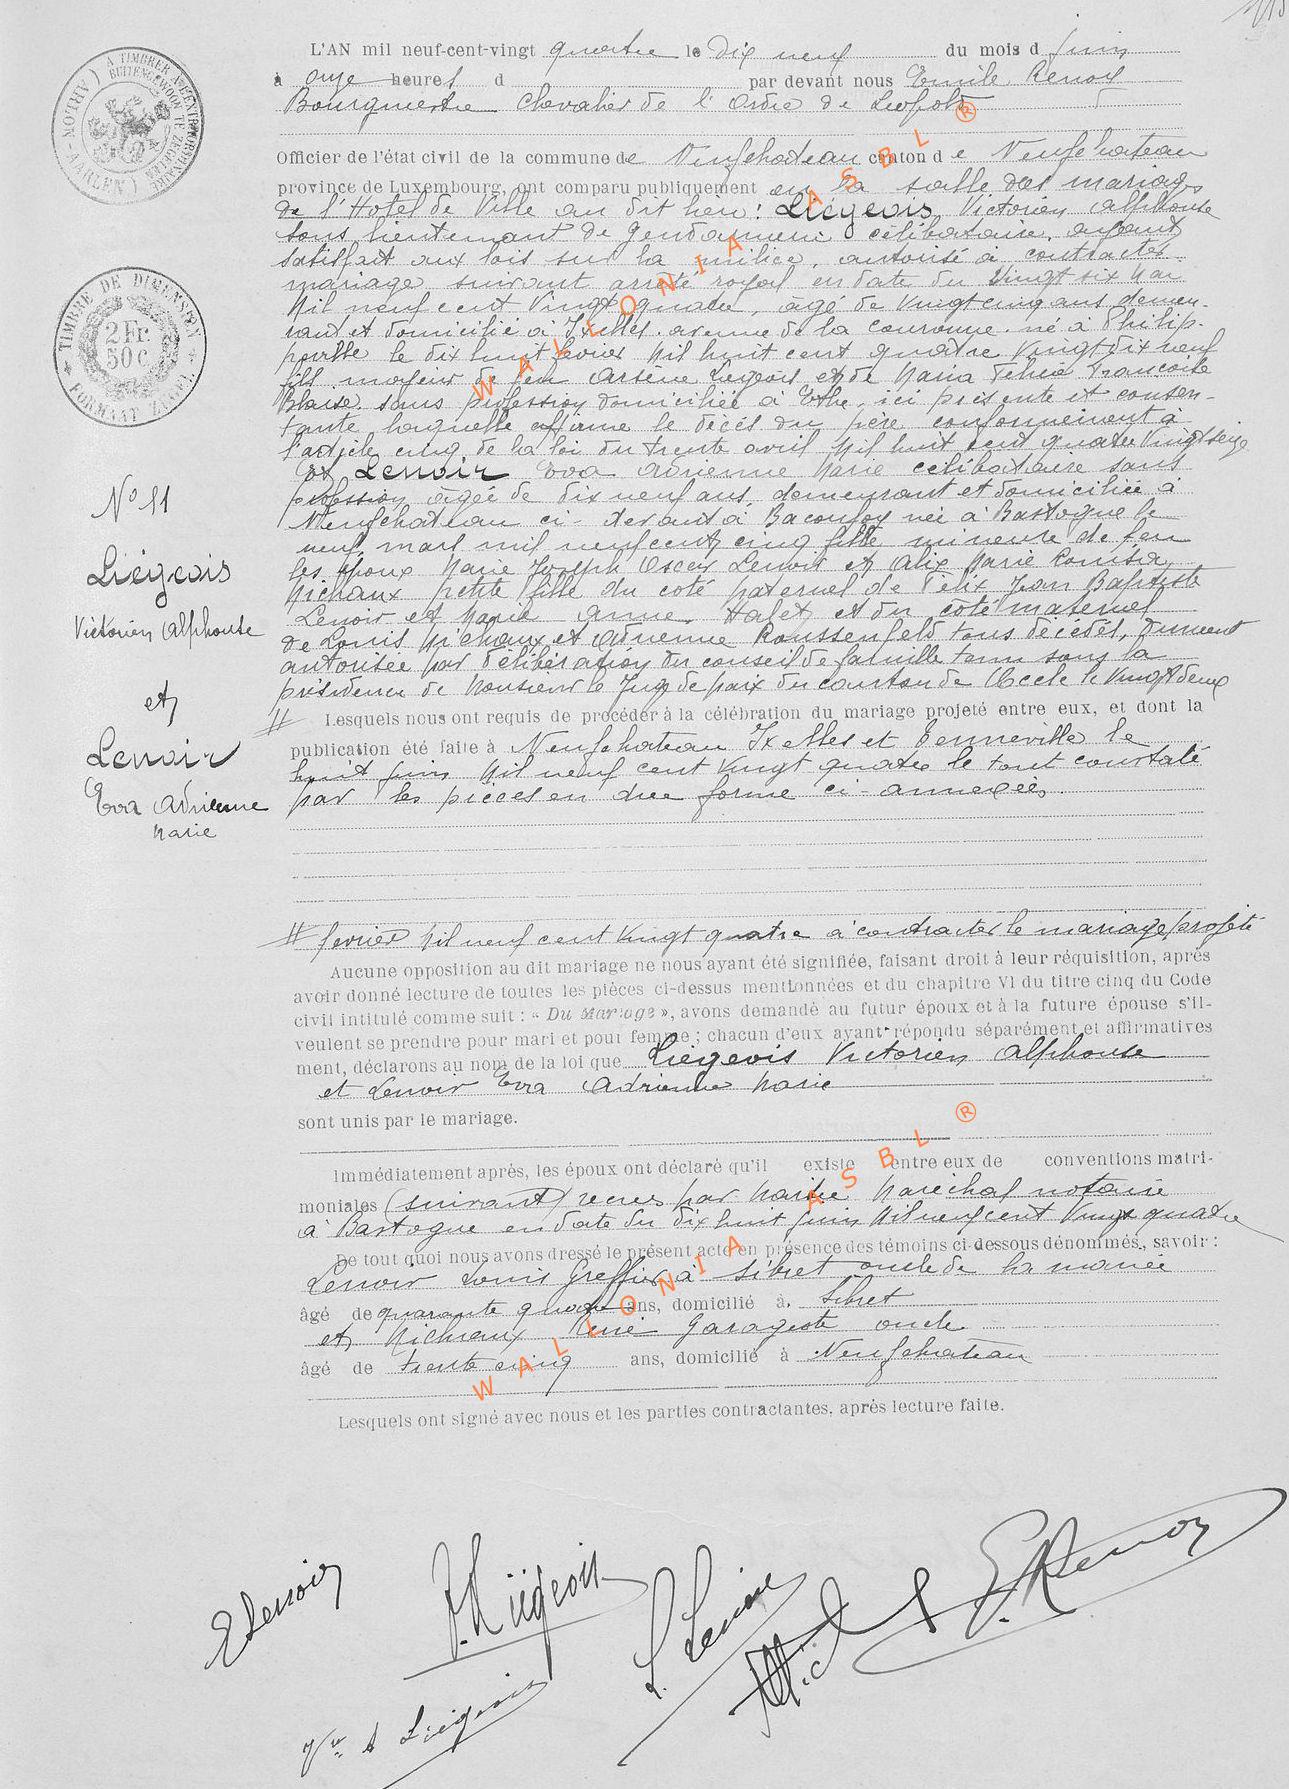 115
L'AN mil neuf-cent-vingt quatre le dix neuf du mois d juin
à onze heures d par devant nous Emile Renoy
Bourgmestre Chevalier de l'Ordre de Léopold
Officier de l'état civil de la commune de Neufchateau canton de Neufchateau
province de Luxembourg, ont comparu publiquement en la salle des mariages
de l'Hotel de Ville au dit lieu : Liégeois Victorien Alphonse
sous lieutenant de gendarmerie célibataire, ayant
satisfait aux lois sur la milice, autorisé à contracter
mariage suivant arrêté royal en date du vingt six mai
Mil neuf cent vingt quatre, âgé de vingt cinq ans demeu-
rant et domicilié à Ixelles avenue de la couronne né à Philip-
peville le dix huit février Mil huit cent quatre vingt dix neuf
fils majeur de feu Arsène Liégeois et de Maria Françoise
Blaise sans profession domiciliée à Ethe, ici présente et consen-
tante laquelle affirme le décès du père conformément à
l'article cinq de la loi du trente avril Mil huit cent quatre vingt seize
Et Lenoir Eva Adrienne Marie célibataire sans
profession âgée de dix neuf ans demeurant et domiciliée à
Neufchateau ci-devant à Baconfoy née à Bastogne le
neuf mars mil neuf cent cinq fille mineure de feu
les époux Marie Joseph Oscar Lenoir et Alix Marie Louise
Michaux petite fille du coté paternel de Félix Jean Baptiste
Lenoir et Marie Anne Hafet et du coté maternel
de Louis Michaux et Adrienne Roussenfeld tous décédés, dument
autorisée par délibération du conseil de famille tenu sous la
présidence de Monsieur le Juge de paix du canton de Uccle le vingt deux
# Lesquels nous ont requis de procéder à la célébration du mariage projeté entre eux, et dont la
publication été faite à Neufchateau Ixelles et Tenneville le
huit juin Mil neuf cent vingt quatre le tout constaté
par les pièces en due forme ci-annexées.
# février Mil neuf cent vingt quatre à contracter le mariage projeté
Aucune opposition au dit mariage ne nous ayant été signifiée, faisant droit à leur réquisition, après
avoir donné lecture de toutes les pièces ci-dessus mentionnées et du chapitre VI du titre cinq du Code
civil intitulé comme suit : « Du Mariage », avons demandé au futur époux et à la future épouse s'il-
veulent se prendre pour mari et pour femme ; chacun d'eux ayant répondu séparément et affirmatives
ment, déclarons au nom de la loi que Liégeois Victorien Alphonse
et Lenoir Eva Adrienne Marie
sont unis par le mariage.
Immédiatement après, les époux ont déclaré qu'il existe entre eux de conventions matri-
moniales (suivant) reçues par Maitre Maréchal notaire
à Bastogne en date du dix huit juin Mil neuf cent vingt quatre
De tout quoi nous avons dressé le présent acte en présence des témoins ci-dessous dénommés, savoir :
Lenoir Louis Greffier à Sibret oncle de la mariée
âgé de quarante quatre ans, domicilié à Sibret
et Michaux René Garagiste oncle
âgé de trente cinq ans, domicilié à Neufchateau
Lesquels ont signé avec nous et les parties contractantes, après lecture faite.
ELenoir
V. Liégeois
L. Lenoir
E. Renoy
Vve A Liégeois
A TIMBRER A L'EXTRAORDINAIRE
BUITENGEWOON TE ZEGELEN
(ARLON)
(AARLEN)
TIMBRE DE DIMENSION
2 Fr.
50 C
FORMAAT ZEGEL
N° 11
Liégeois
Victorien Alphonse
et
Lenoir
Eva Adrienne
Marie
WALLONIA ASBL ®
WALLONIA ASBL ®